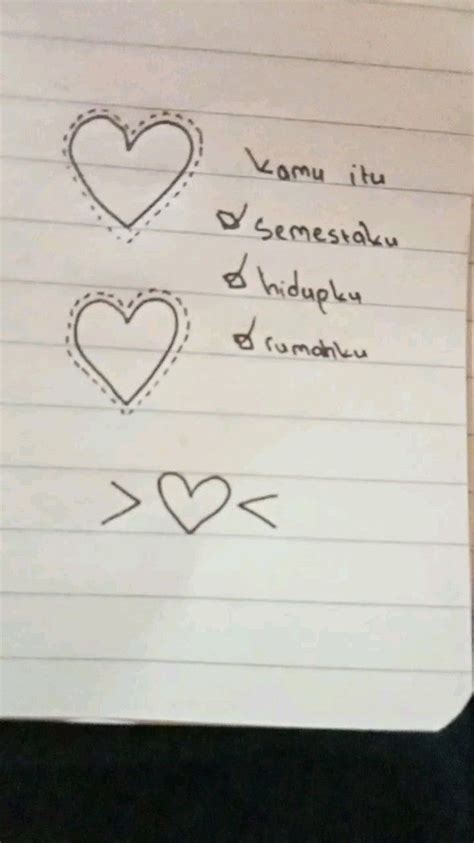 kamu itu
☑ semestaku
☑ hidupku
☑ rumahku
> ♡ <